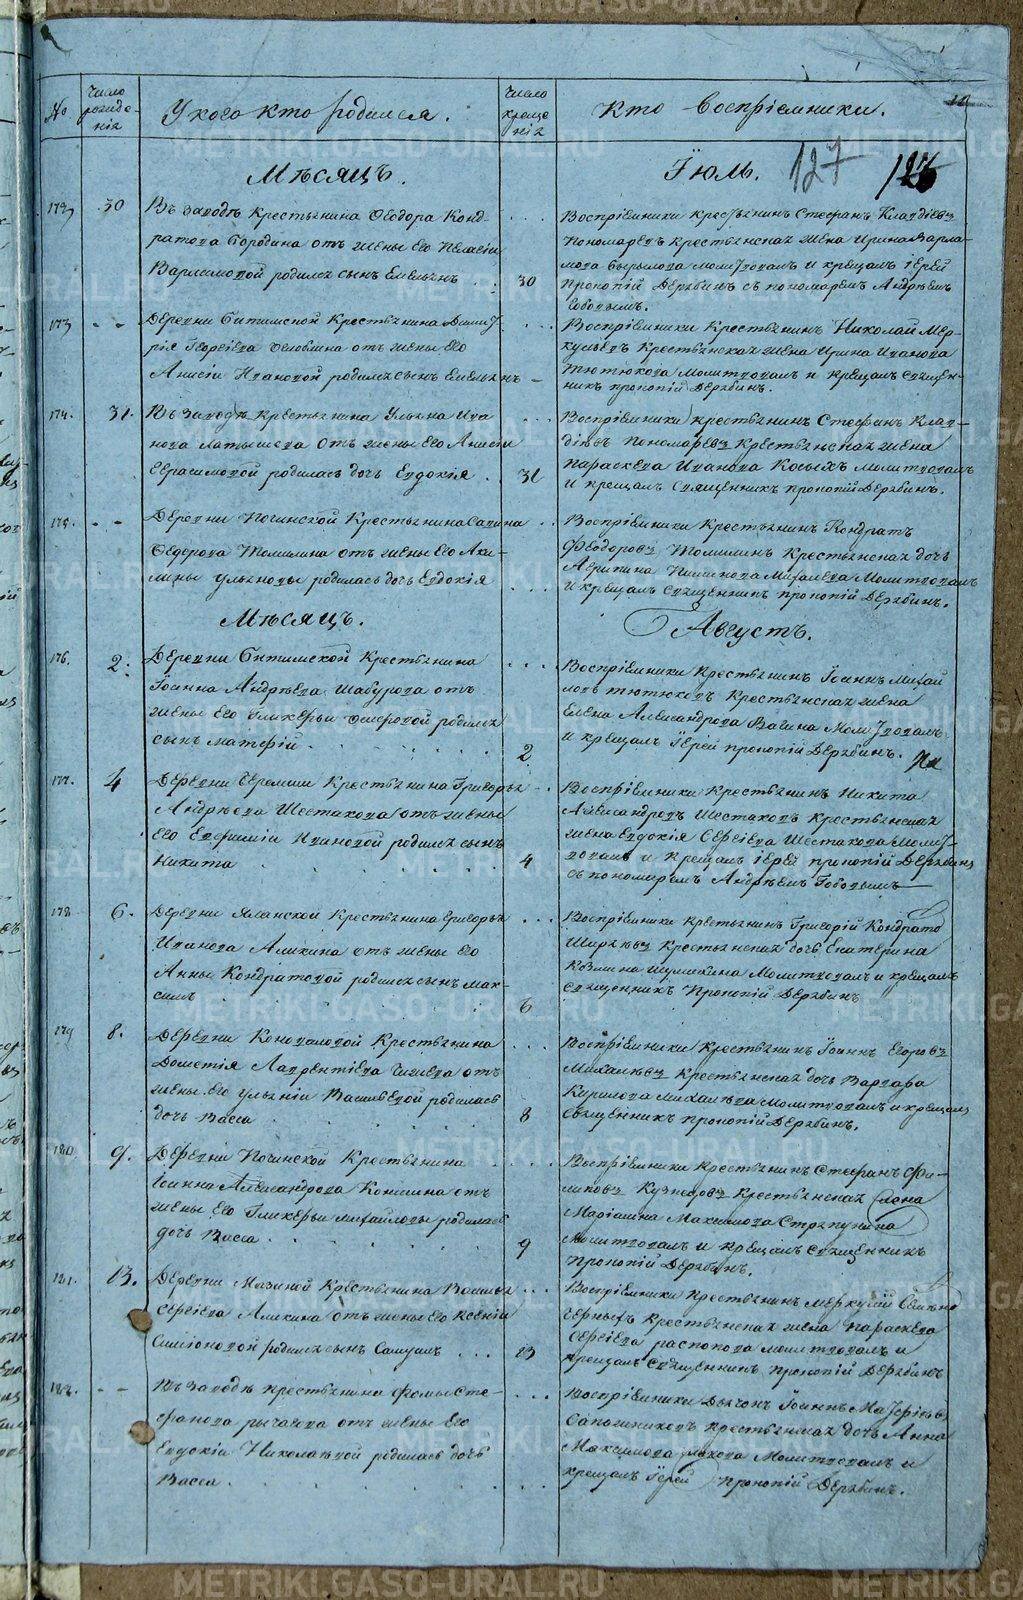 №
Число
рожде-
нія
У кого кто родился.
Число
креще
нія
Кто воспріемники.
Мѣсяцъ.
Іюль.
127
173
30
Въ заводѣ крестьянина Ѳеодора Конд-
ратова Бородина отъ жены его Пелагіи
Варламовой родился сынъ Емельянъ
30
Воспріемники крестьянинъ Стефанъ Клавдіевъ
Пономаревъ крестьянская жена Ирина Варла-
мова молитвовалъ и крещалъ іерей
Прокопій Дерябинъ съ пономаремъ Андреемъ
173
Деревни Битимской Крестьянина Дмит-
рія Георгіева отъ жены его
Анисіи Ивановой родился сынъ Емельянъ
Воспріемники Крестьянинъ Николай Мер-
курьевъ Крестьянская жена Ирина Иванова
Тютюкова Молитвовалъ и Крещалъ Священ-
никъ прокопій Дерябинъ.
174.
31.
Въ заводѣ крестьянина Ульяна Ива
нова Латышева отъ жены его Анисіи
Герасимовой родилась дочь Евдокія
31
Воспріемники крестьянинъ Стефанъ Клав-
діевъ Пономаревъ Крестьянская жена
Параскева Иванова Косыхъ Молитвовалъ
и крещалъ Священникъ прокопій Дерябинъ.
175.
Деревни Крестьянина Савина
Федорова Томилина отъ жены его Аки-
лины Ульяновы родилась дочь Евдокія
Воспріемники Крестьянинъ Кондратъ
Феодоровъ Томилинъ Крестьянская дочь
Молитвовалъ
и крещалъ Священникъ прокопій Дерябинъ.
Мѣсяцъ.
Августъ.
176.
2.
Деревни Битимской Крестьянина
Іоанна Андрѣева Шабурова отъ
жены его Гликерьи родился
сынъ Матфій
2
Воспріемники Крестьянинъ Іоаннъ Михай
ловъ Тютюковъ Крестьянская жена
Елена Александрова Вагина Молитвовалъ
и крещалъ Іерей прокопій Дерябинъ.
177.
4
Деревни Черемши Крестьянина Григорья
Андрѣева Шестакова отъ жены
его Евфиміи Ивановой родился сынъ
Никита
4
Воспріемники Крестьянинъ Никита
Александровъ Шестаковъ Крестьянская
жена Евдокія Сергіева Шестакова Молит-
вовалъ и Крещалъ іерей прокопій Дерябинъ
съ пономаремъ Андрѣемъ
178
6.
Деревни Крестьянина Григорья
Иванова Аликина отъ жены его
Анны Кондратовой родился сынъ Мак-
симъ
6
Воспріемники крестьянинъ Григорій Кондрато
Крестьянская дочь Екатерина
Козмина Молитвовалъ и крещалъ
Священникъ Прокопій Дерябинъ
179
8.
Деревни Коноваловой Крестьянина
Дометія Лаврентіева отъ
жены его Ульяніи Васильевой родилась
дочь Васса
8
Воспріемники Крестьянинъ Іоаннъ Егоровъ
Михалевъ Крестьянская дочь Варвара
Кирилова Михалева Молитвовалъ и крещалъ
Священникъ прокопій Дерябинъ.
180
9.
Деревни Крестьянина
Іоанна Александрова отъ
жены его Гликерьи Михайловы родилась
дочь Васса
9
Воспріемники Крестьянинъ Стефанъ Фи-
липовъ Кузнецовъ Крестьянская жена
Маріанна Максимова Стряпунина
Молитвовалъ и Крещалъ Священникъ
прокопій Дерябинъ.
181.
13.
Деревни Мазиной Крестьянина
Сергіева Аликина отъ жены его Ксеніи
Симіоновой родился сынъ Самуилъ
13
Воспріемники Крестьянинъ Меркурій
Черныхъ Крестьянская жена Параскева
Сергіева Распопова молитвовалъ и
крещалъ Священникъ прокопій Дерябинъ
182.
Въ Заводѣ крестьянина Фомы Сте-
фанова Рычкова отъ жены его
Евдокіи Николаевой родилась дочь
Васса
Воспріемники Дьячонъ Іоаннъ Матфіевъ
Сапожниковъ крестьянская дочь Анна
Максимова Молитвовалъ и
крещалъ Іерей Прокопій Дерябинъ.
METRIKI.GASO-URAL.RU